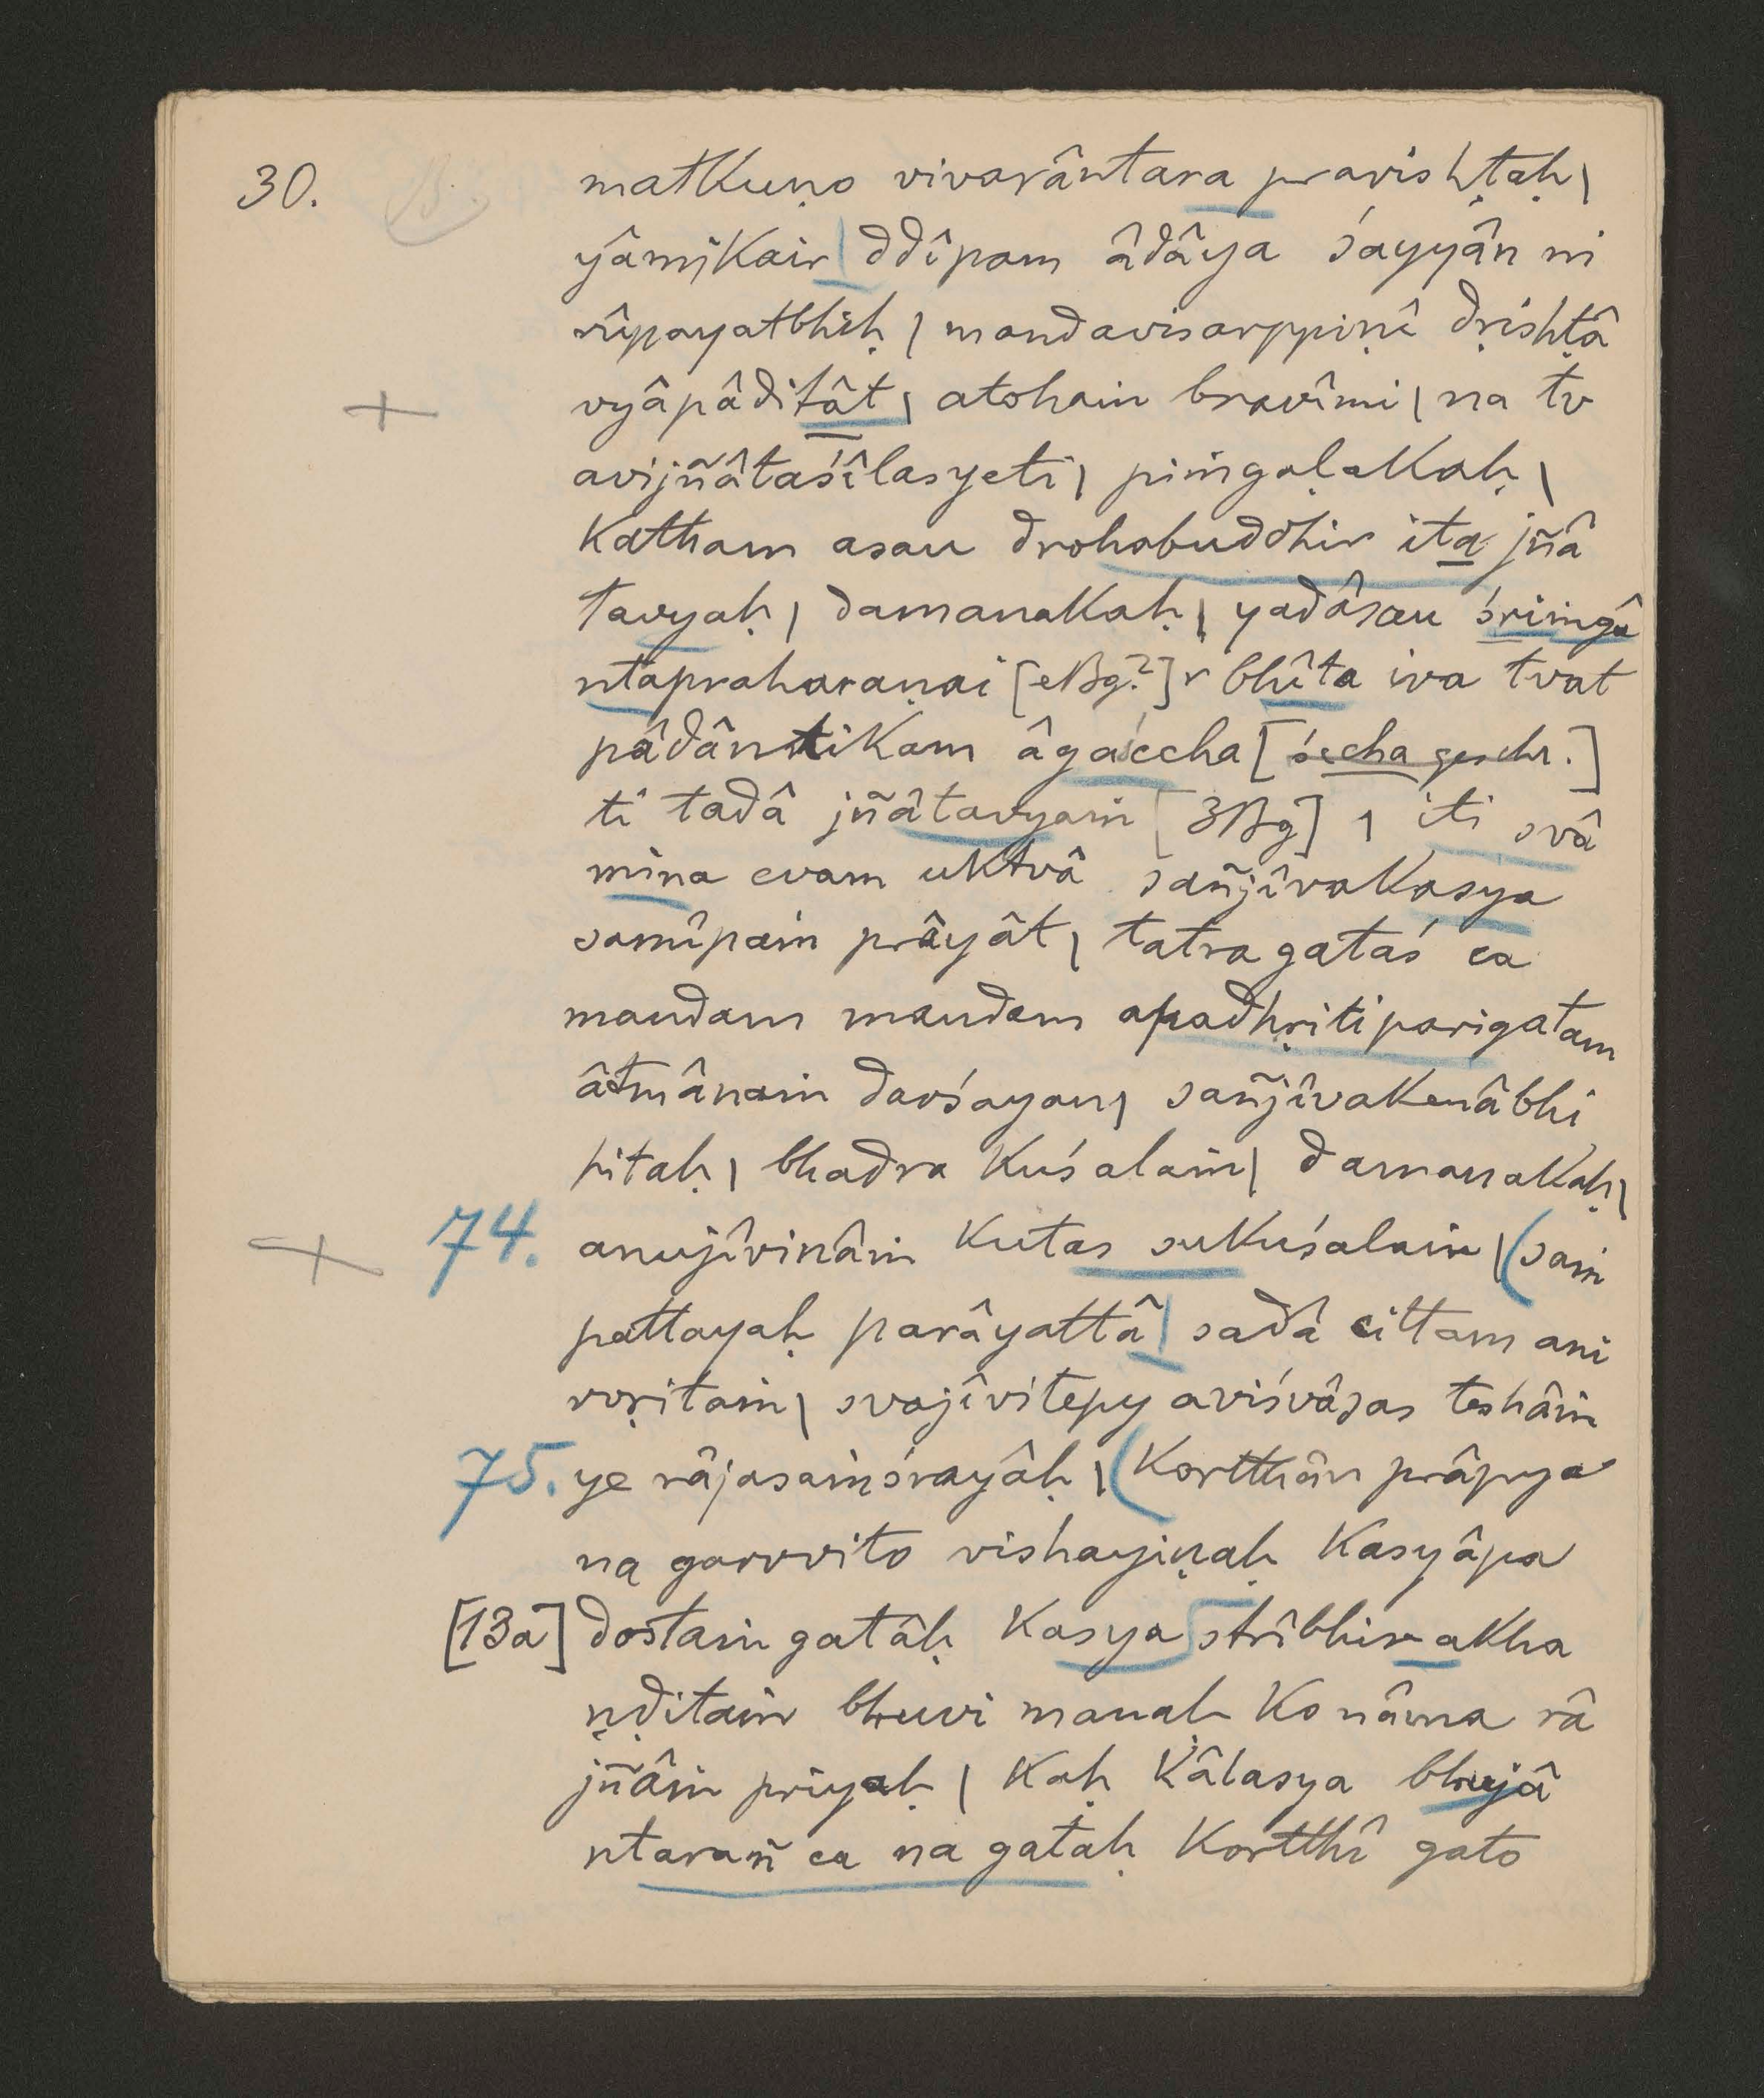 30.
matkuṇo vivarântara pravishṭaḥ |
yâmikair | ddîpam âdâya śayyân ni
rûpayatbhiḥ | mandavisarppiṇî dṛishṭâ
vyâpâditât | atohaṁ bravîmi | na tv
avijñâtaśîlasyeti | piṁgaḷakaḥ |
katham asau drohabuddhir ita jñâ
tavyaḥ | damanakaḥ | yadâsau śriṁgâ
ntapraharaṇai [eBg?] r bhîta iva tvat
pâdântikam âgaccha [śccha geschr.]
ti tadâ jñâtavyaṁ [3Bg] | iti svâ
mina evam uktvâ sañjîvakasya
samîpaṁ prâyât | tatra gataś ca
mandam mandam apadhṛitiparigatam
âtmânaṁ darśayan | sañjîvakenâbhi
hitaḥ | bhadra kuśalaṁ | damanakaḥ |
74. anujîvinâṁ kutas sukuśalaṁ | (saṁ
pattayaḥ parâyattâ | sadâ cittam ani
vṛitaṁ | svajîvitepy aviśvâsas teshâṁ
75. ye râjasaṁśrayâḥ | (kortthân prâpya
na garvvito vishayiṇaḥ kasyâpa
[13a] dostaṁ gatâḥ kasya strîbhir akha
ṇḍitaṁ bhuvi manaḥ ko nâma râ
jñâṁ priyaḥ | kaḥ kâlasya bhujâ
ntarañ ca na gataḥ kortthî gato